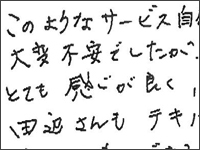 このようなサービス自
大変不安でしたが.
とても感じが良く
田辺さんも テキ